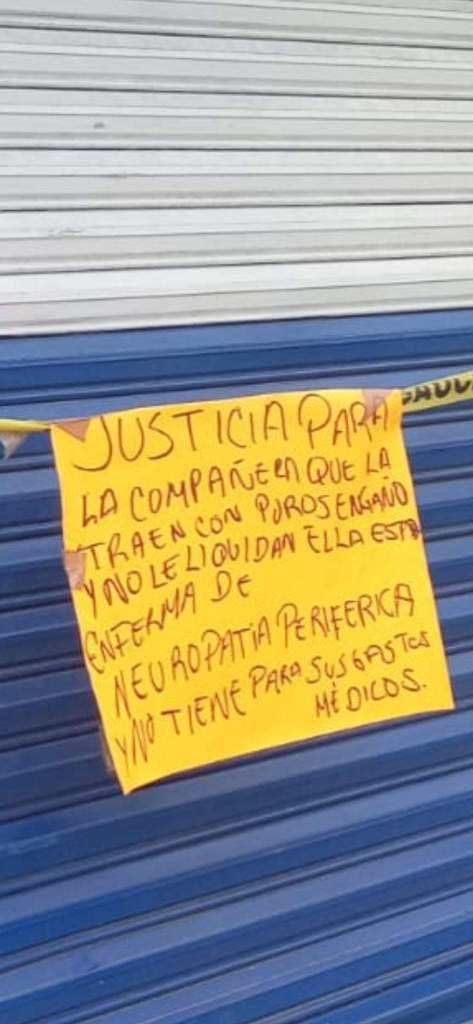 JUSTICIA PARA
LA COMPAÑERA QUE LA
TRAEN CON PUROS ENGAÑO
Y NO LE LIQUIDAN ELLA ESTA
ENFERMA DE
NEUROPATIA PERIFERICA
Y NO TIENE PARA SUS GASTOS
MÉDICOS.